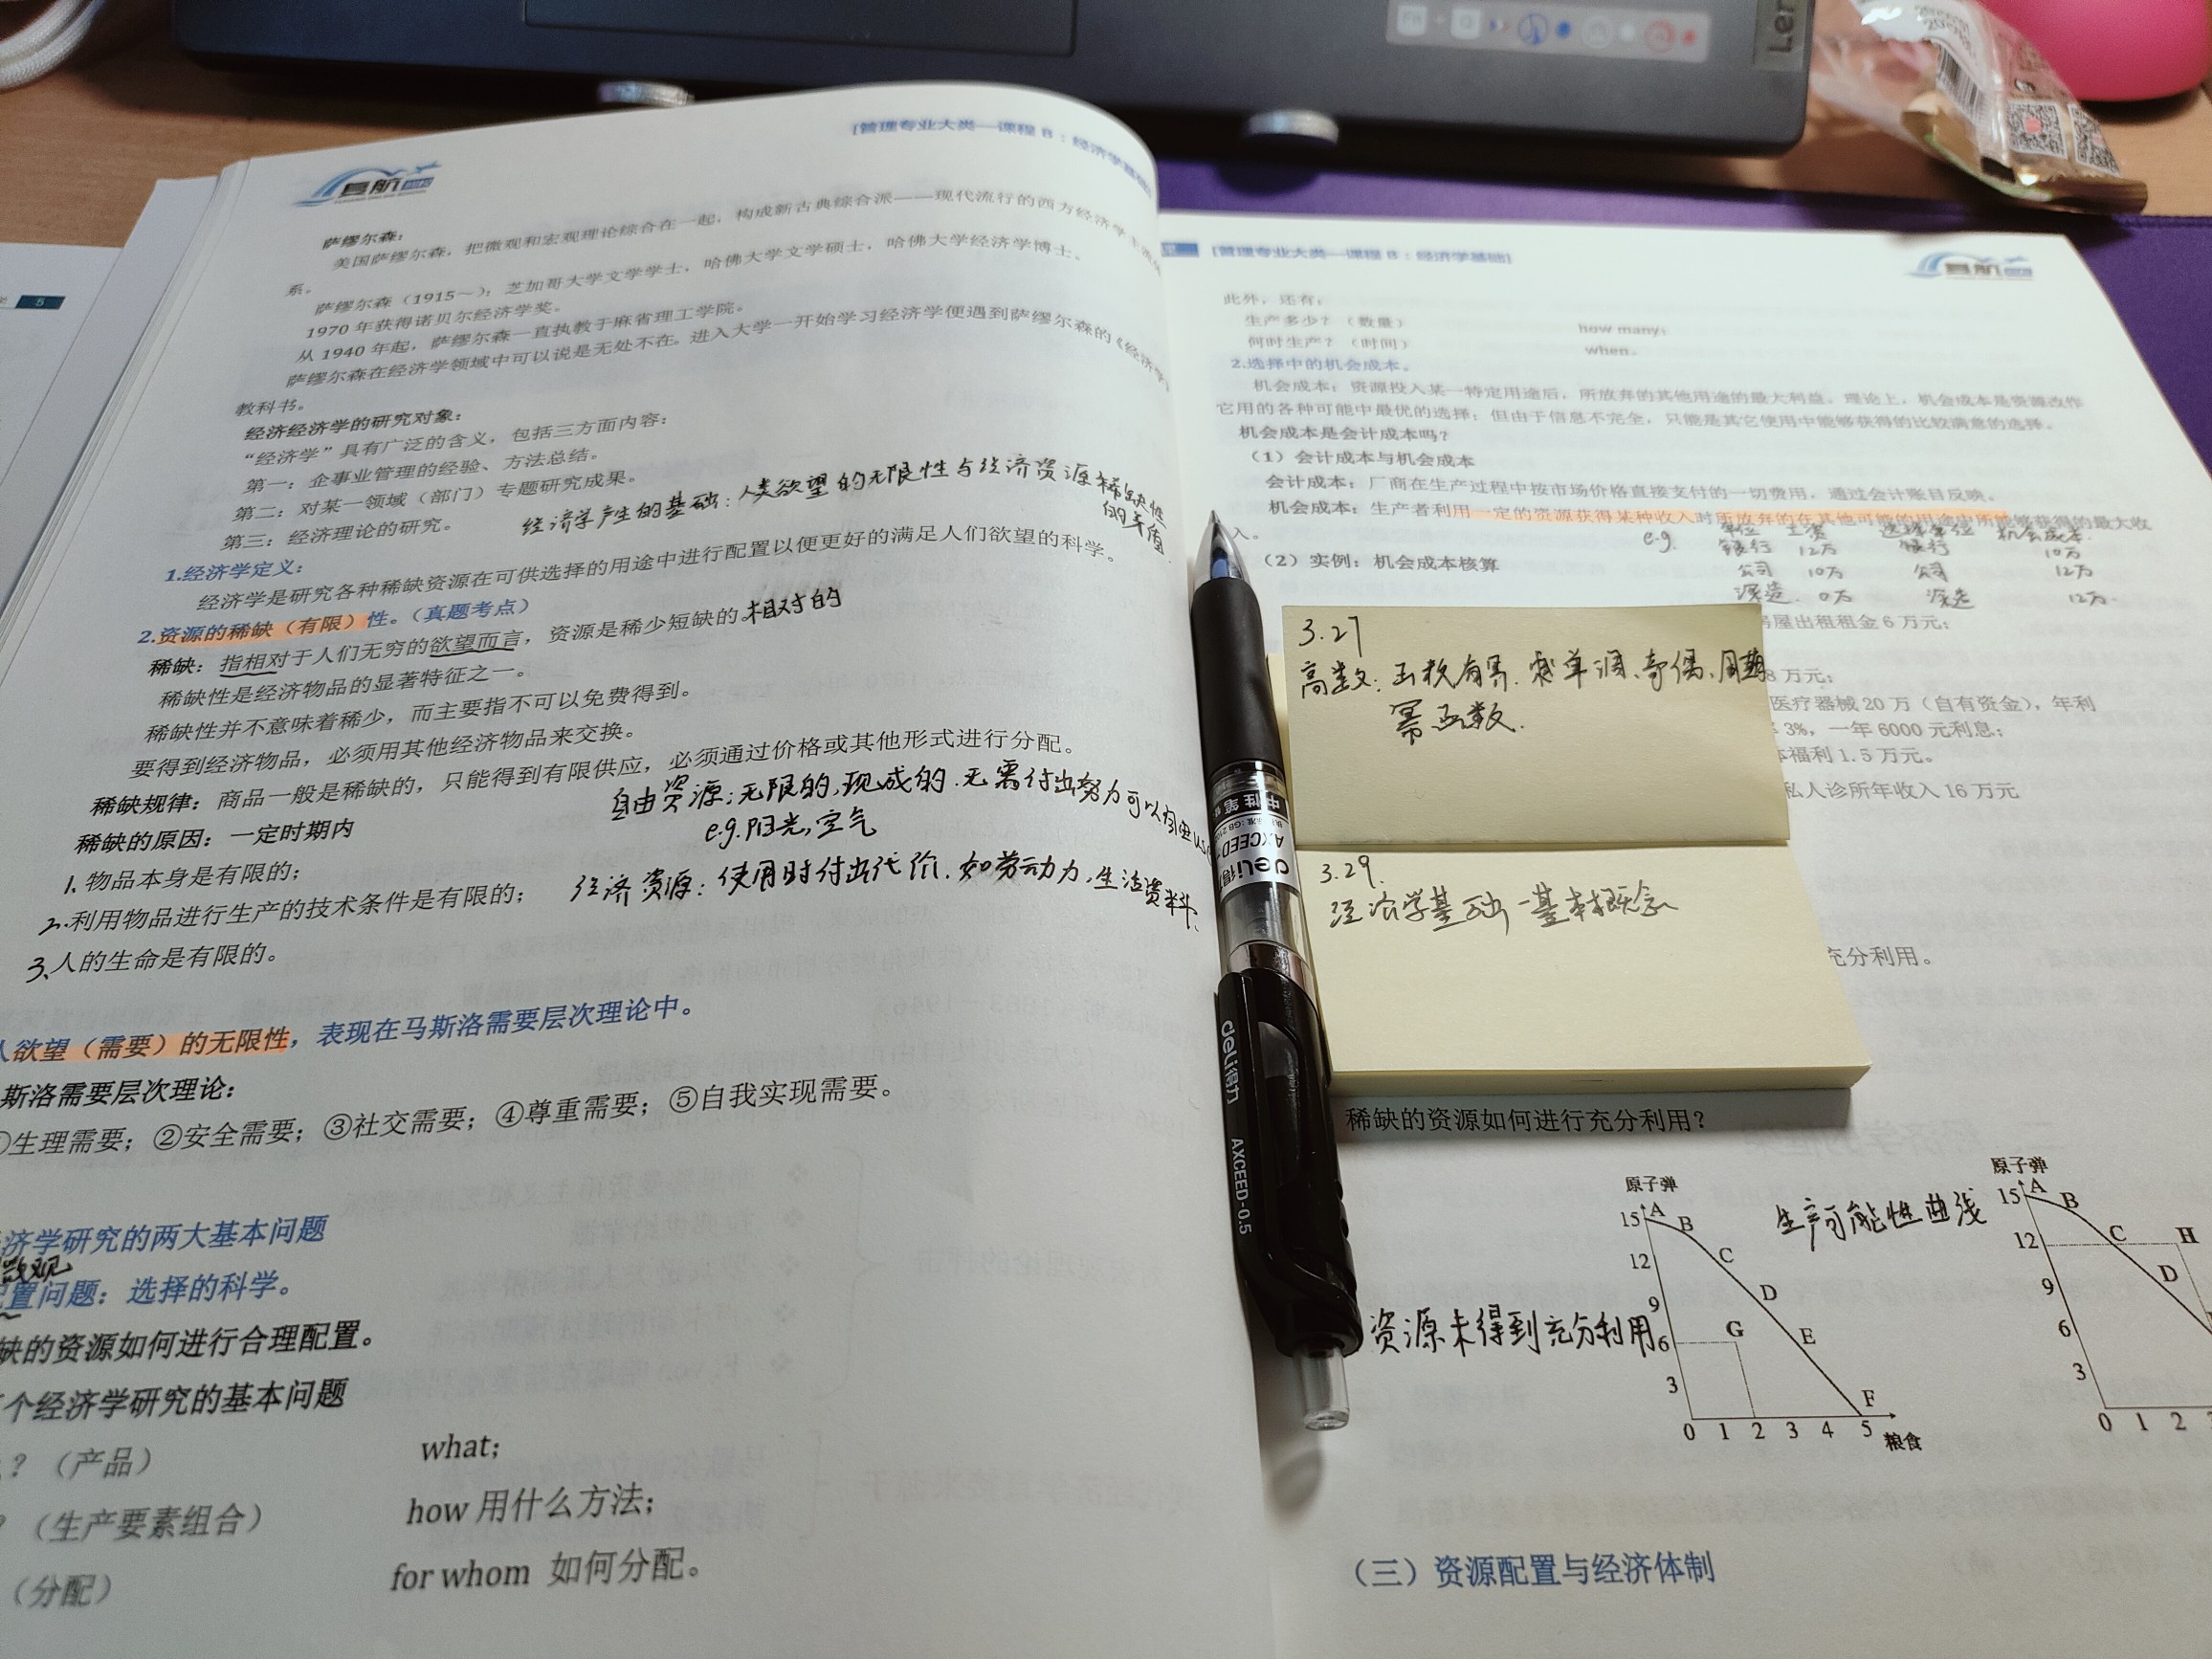 5
[管理专业大类—课程 B：经济学基础]
萨缪尔森：
美国萨缪尔森，把微观和宏观理论综合在一起，构成新古典综合派——现代流行的西方经济学
系。
萨缪尔森（1915～）；芝加哥大学文学学士，哈佛大学文学硕士，哈佛大学经济学博士。
1970 年获得诺贝尔经济学奖。
从 1940 年起，萨缪尔森一直执教于麻省理工学院。
萨缪尔森在经济学领域中可以说是无处不在。进入大学一开始学习经济学便遇到萨缪尔森的《经济学》
教科书。
经济经济学的研究对象：
“经济学”具有广泛的含义，包括三方面内容：
第一：企事业管理的经验、方法总结。
第二：对某一领域（部门）专题研究成果。
第三：经济理论的研究。
经济学产生的基础：人类欲望的无限性与经济资源稀缺性
的矛盾
1.经济学定义：
经济学是研究各种稀缺资源在可供选择的用途中进行配置以便更好的满足人们欲望的科学。
2.资源的稀缺（有限）性。（真题考点）
稀缺：指相对于人们无穷的欲望而言，资源是稀少短缺的。相对的
稀缺性是经济物品的显著特征之一。
稀缺性并不意味着稀少，而主要指不可以免费得到。
要得到经济物品，必须用其他经济物品来交换。
稀缺规律：商品一般是稀缺的，只能得到有限供应，必须通过价格或其他形式进行分配。
自由资源：无限的，现成的．无需付出努力可以
e.g.阳光，空气
稀缺的原因：一定时期内
1.物品本身是有限的；
2.利用物品进行生产的技术条件是有限的；
经济资源：使用时付出代价．如劳动力，生活资料．
3.人的生命是有限的。
人欲望（需要）的无限性，表现在马斯洛需要层次理论中。
斯洛需要层次理论：
①生理需要；②安全需要；③社交需要；④尊重需要；⑤自我实现需要。
济学研究的两大基本问题
微观
配置问题：选择的科学。
缺的资源如何进行合理配置。
个经济学研究的基本问题
？（产品） what；
？（生产要素组合） how 用什么方法；
（分配） for whom 如何分配。
[管理专业大类—课程 B：经济学基础]
此外，还有：
生产多少？（数量） how many；
何时生产？（时间） when。
2.选择中的机会成本。
机会成本：资源投入某一特定用途后，所放弃的其他用途的最大利益。理论上，机会成本是资源改作
它用的各种可能中最优的选择；但由于信息不完全，只能是其它使用中能够获得的比较满意的选择。
机会成本是会计成本吗？
（1）会计成本与机会成本
会计成本：厂商在生产过程中按市场价格直接支付的一切费用，通过会计账目反映。
机会成本：生产者利用一定的资源获得某种收入时所放弃的在其他可能的用途中所能够获得的最大收
入。
e.g. 单位 工资 选择单位 机会成本
银行 12万 银行 10万
公司 10万 公司 12万
深造 0万 深造 12万
（2）实例：机会成本核算
房屋出租租金 6 万元；
8 万元；
医疗器械 20 万（自有资金），年利
3%，一年 6000 元利息；
福利 1.5 万元。
私人诊所年收入 16 万元
充分利用。
3.27
高数：函数有界．单调、奇偶、周期
幂函数．
3.29.
经济学基础-基本概念
稀缺的资源如何进行充分利用？
原子弹
15 A B
12 C
9 D
6 G E
3 F
0 1 2 3 4 5 粮食
生产可能性曲线
资源未得到充分利用
原子弹
15 A B
12 C H
9 D
6
3
0 1 2
（三）资源配置与经济体制
deli得力
AXCEED-0.5